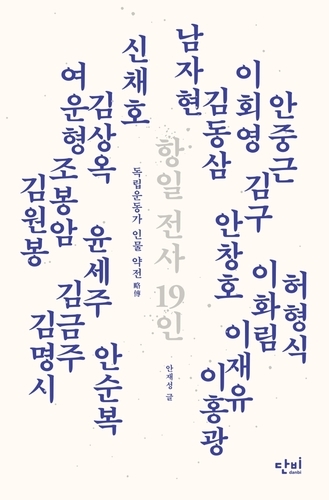 남자현
신채호
이회영
김동삼
여운형
김상옥
안중근
김구
조봉암
김원봉
항일 전사 19인
독립운동가 인물 약전 略傳
안창호
윤세주
이화림
허형식
김금주
김명시
안순복
이재유
이홍광
안재성 글
단비
danbi